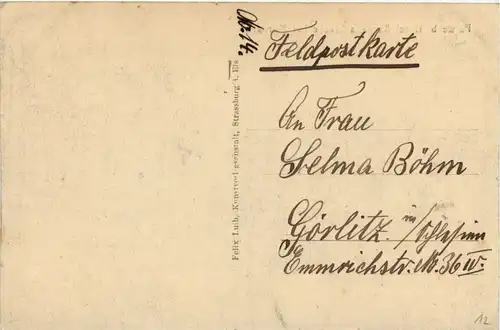 Feldpostkarte
An Frau
Selma Böhm
Görlitz in/Schlesien
Emmrichstr. Nr. 36 IV.
Felix Luib, Kunstverlagsanstalt, Strassburg i. Els
12